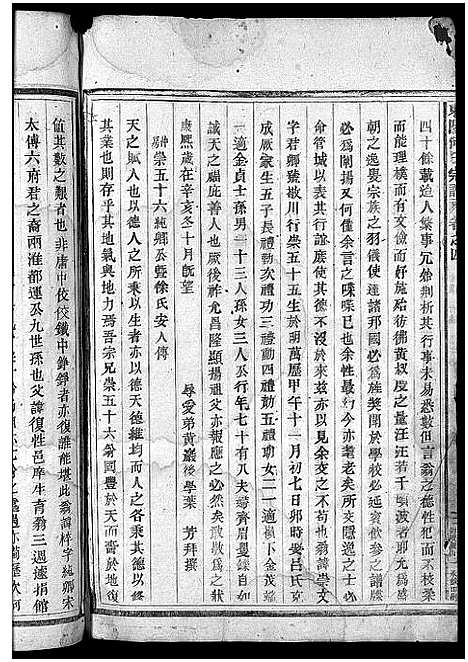 四十餘載迨人繁事冗始剖析其行事未易悉數但言翁之德性恕而不枝柔
而能理樸而有文施而好施給彷彿黃叔度之量汪汪若千頃波者耶允爲盛
朝之逸叟宗族之羽儀使達諸邦國必爲旌奬聞於學校必延賓飲參之譜牒
必爲闡揚又何僅余言之喋喋已也余性最幻今亦耄老矣所交隱逸之士必
命管城以表其行誼庶使其德不於没矣亦以見余交之不杇也翁諱崇文
字君卿號我川行崇五十五生於明萬厯甲午十一月初七日卯時妻吕氏克
成厥家生五子長禮動次功三禮動四禮動五禮動女二一適横卜金茂
二適金貞士孫男一十三人孫女三人公行年七十有八夫齊眉矍鑠自如
誠天之福庇善人也厥後祚允昌隆顯揚祖父亦報應之必然矣故敢爲之狀
康熙歲在辛亥冬十月旣望
辱愛弟黄巖後學葉 芳拜撰
崇五十六純卿公曁徐氏安人傳
天之賦人也以德人之所乘以生者亦以德天德維均而人之各乘其德以
其業也則存乎其地氣與地力焉吾宗兄崇五十六䓁固豐於天而嗇於地復
値其數之艱者也非庸中佼佼鐵中錚錚者亦復誰能堪此翁諱梓字純卿宋
太傅六府君之裔兩淮都運公九世孫也父諱復性邑庠生育翁三週遽捐館